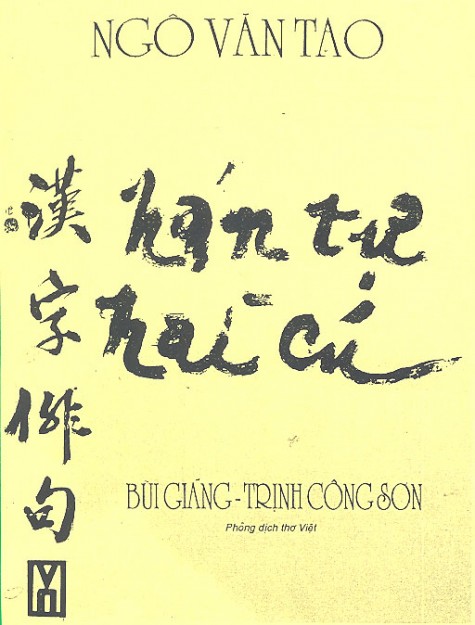 NGÔ VĂN TAO
hán tự
hài cú
漢字俳句
BÙI GIÁNG - TRỊNH CÔNG SƠN
Phỏng dịch thơ Việt